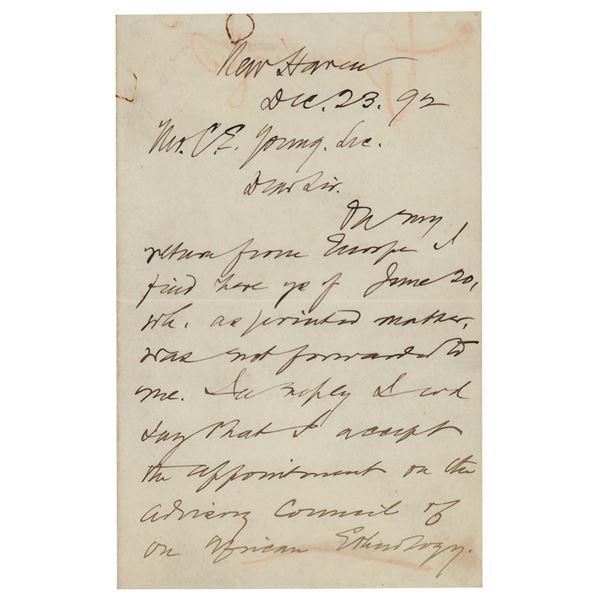 New Haven
Dec. 23. 92
Mr. C. E. Young. Sec.
Dear Sir.
On my
return from Europe I
find here yrs of June 20,
wh. as printed matter,
was not forwarded to
me. In reply I wd
say that I accept
the appointment on the
Advisory Council of
on African Ethnology.